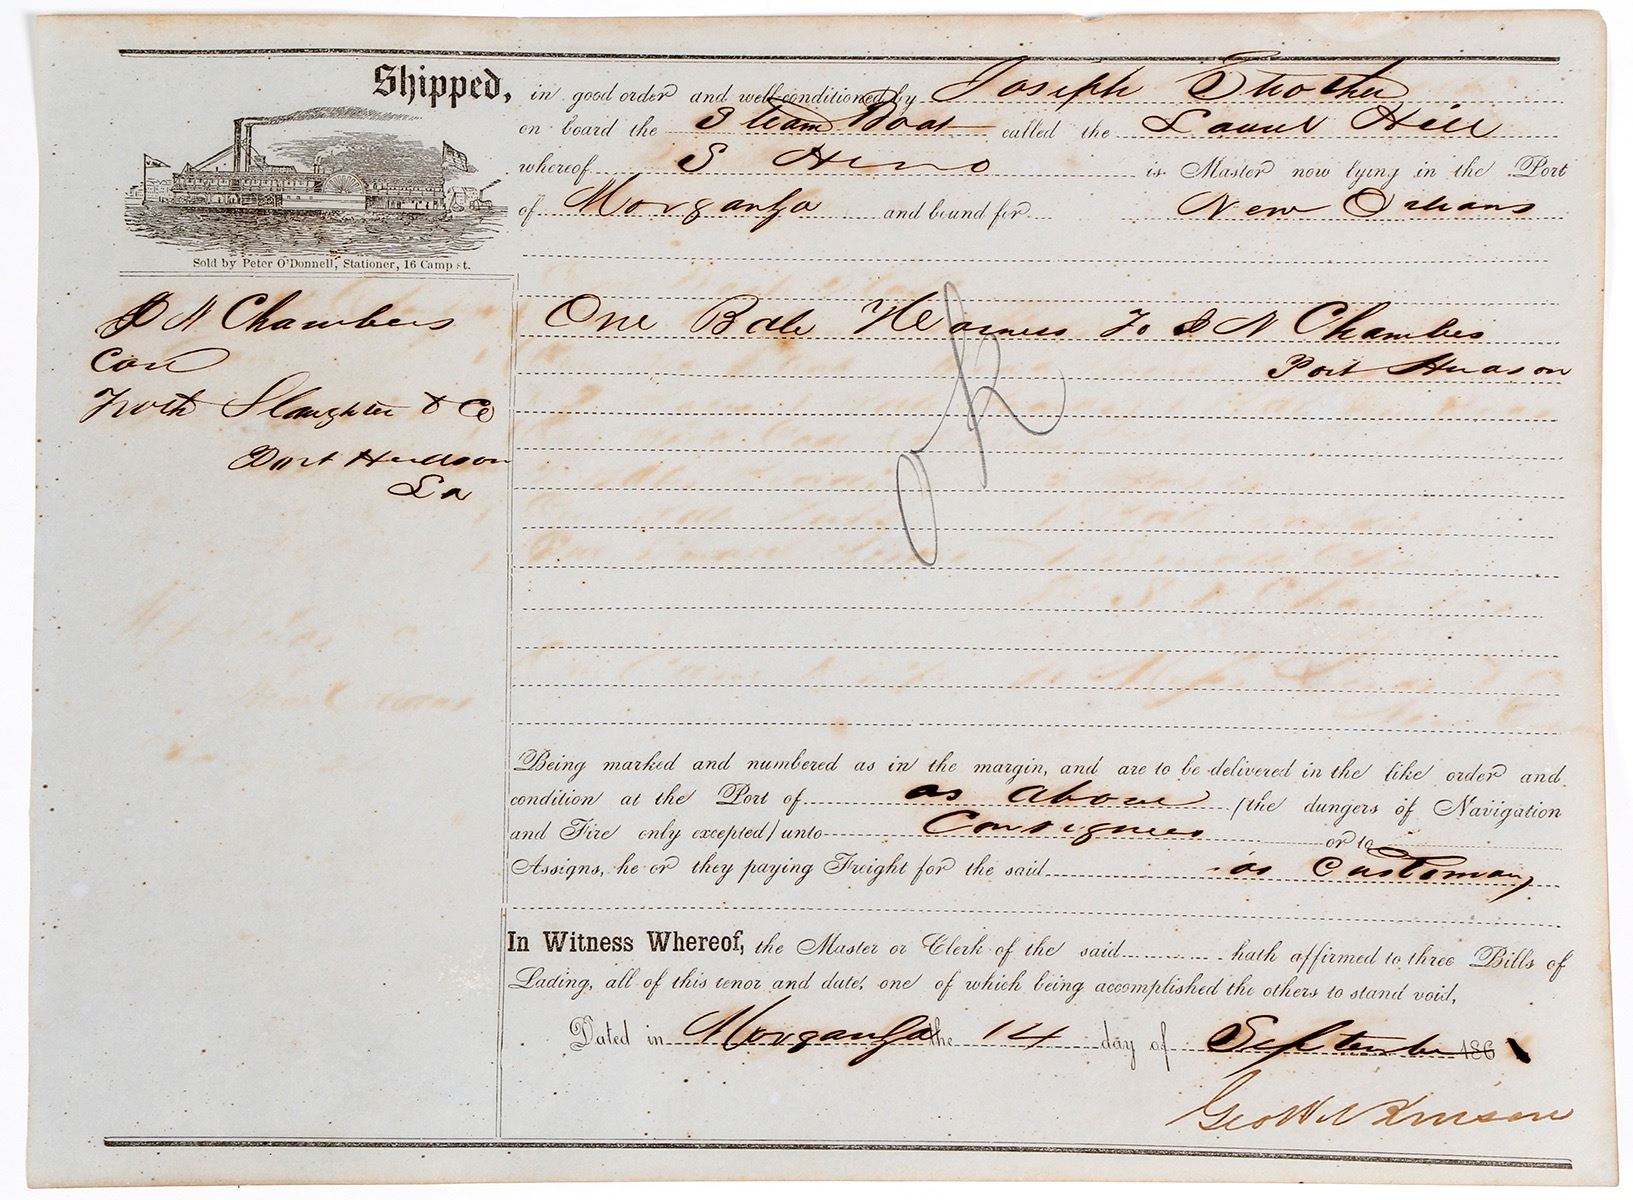 Shipped, in good order and well-conditioned by Joseph Strother
on board the Steam Boat called the Laurel Hill
whereof S is Master now lying in the Port
of Morganza and bound for New Orleans
Sold by Peter O'Donnell, Stationer, 16 Camp st.
N Chambers
Care
North Slaughter & Co
Port Hudson
La
One Bale Harness To N Chambers
Port Hudson
ok
Being marked and numbered as in the margin, and are to be delivered in the like order and
condition at the Port of as above / the dangers of Navigation
and Fire only excepted / unto Consignees or to
Assigns, he or they paying Freight for the said as Customary
In Witness Whereof, the Master or Clerk of the said hath affirmed to three Bills of
Lading, all of this tenor and date, one of which being accomplished the others to stand void,
Dated in Morganza the 14 day of September 1861
Geo